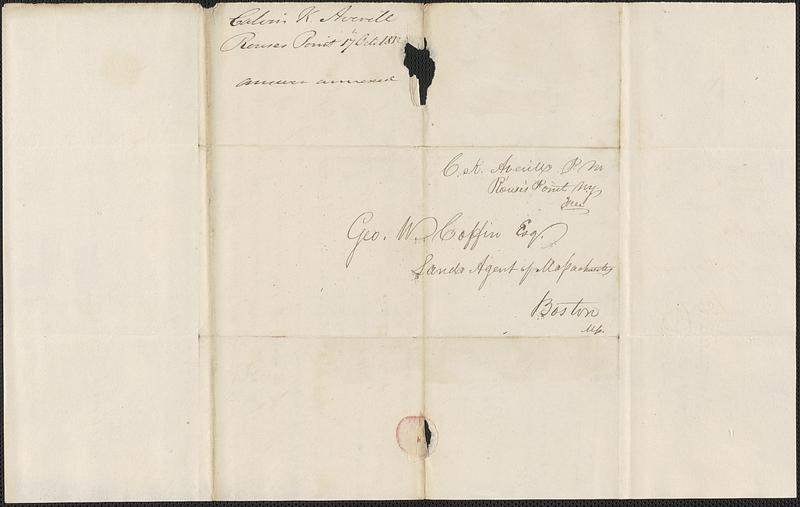 Calvin K. Averill
Rouses Point 17th Oct.
answer annexed
C. K. Averill P. M
Rouse's Point N.Y
Free
Geo. W. Coffin Esq.
Lands Agent of Massachusetts
Boston
Ms.